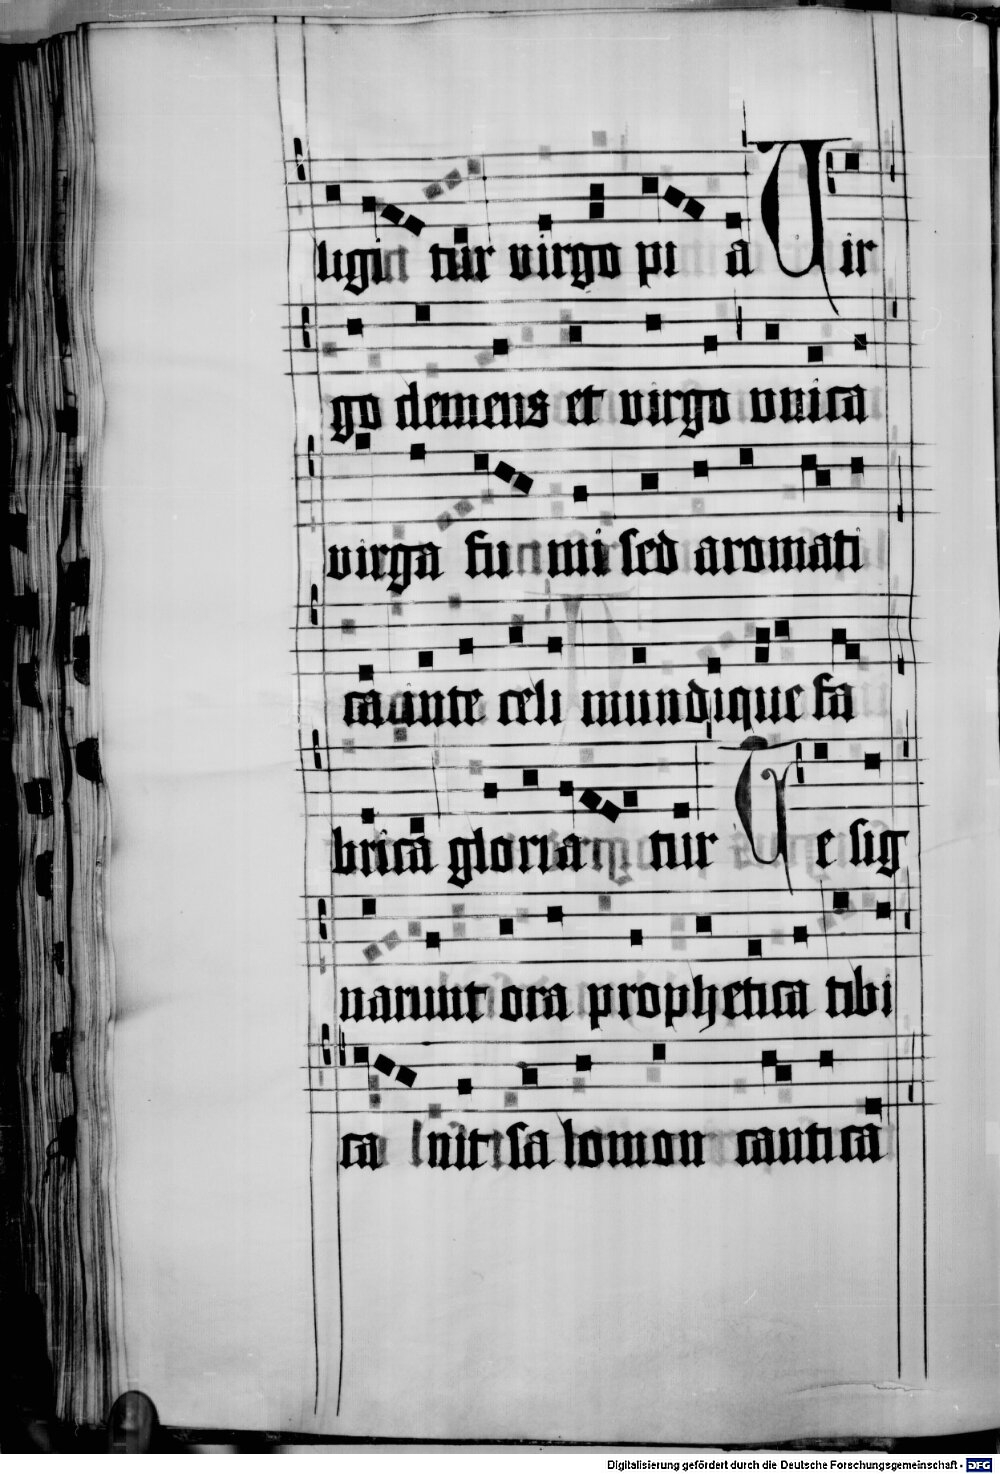 ligi tur virgo pi a Vir
go clemens et virgo vnica
virga fu mi sed aromati
ca inte celi mundique fa
brica gloria tur Te sig
narunt ora prophetica tibi
ca nit sa lomon cantica
Digitalisierung gefördert durch die Deutsche Forschungsgemeinschaft - DFG